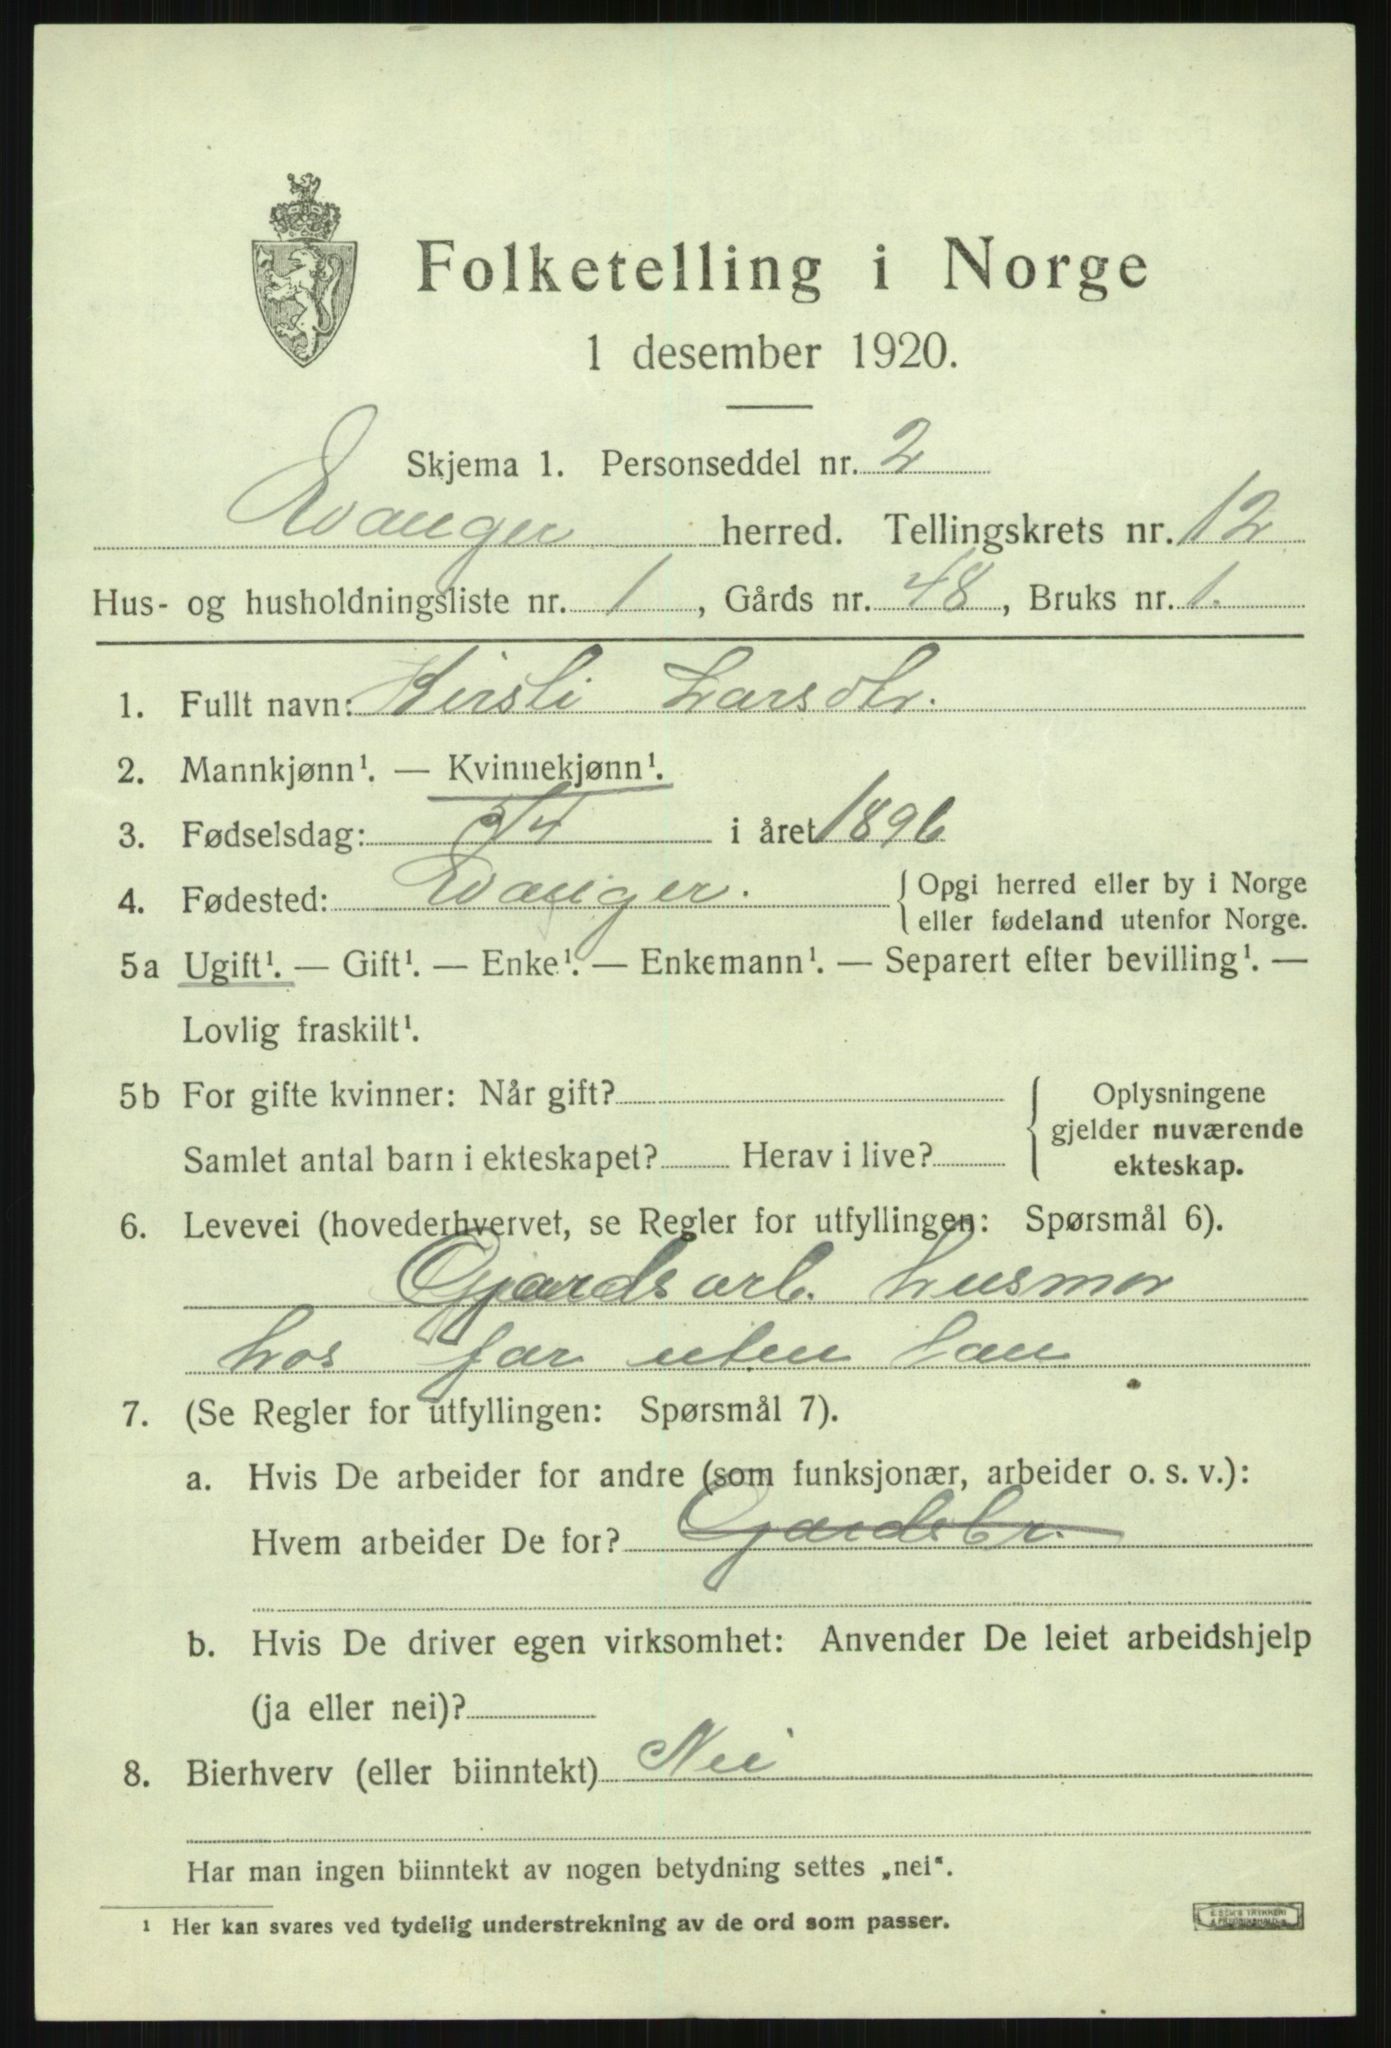 Folketelling i Norge
1 desember 1920.
Skjema 1. Personseddel nr. 2
Evanger herred. Tellingskrets nr. 12
Hus- og husholdningsliste nr. 1, Gårds nr. 48, Bruks nr. 1.
1. Fullt navn: Kirsti Larsdtr.
2. Mannkjønn¹. — Kvinnekjønn¹.
3. Fødselsdag: 5/4 i året 1896
4. Fødested: Evanger. { Opgi herred eller by i Norge
eller fødeland utenfor Norge.
5a Ugift¹. — Gift¹. — Enke¹. — Enkemann¹. — Separert efter bevilling¹. —
Lovlig fraskilt¹.
5b For gifte kvinner: Når gift? { Oplysningene
gjelder nuværende
Samlet antal barn i ekteskapet? Herav i live? ekteskap.
6. Levevei (hovederhvervet, se Regler for utfyllingen: Spørsmål 6).
Gjardsarb. husmor
hos far uten løn
7. (Se Regler for utfyllingen: Spørsmål 7).
a. Hvis De arbeider for andre (som funksjonær, arbeider o. s. v.):
Hvem arbeider De for? Gardsbr.
b. Hvis De driver egen virksomhet: Anvender De leiet arbeidshjelp
(ja eller nei)?
8. Bierhverv (eller biinntekt) Nei
Har man ingen biinntekt av nogen betydning settes „nei“.
¹ Her kan svares ved tydelig understrekning av de ord som passer.